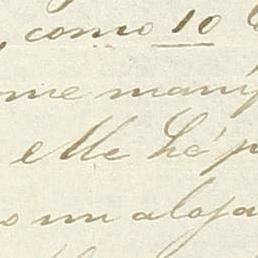 , como 10
me manif
elle há p
o um aloja